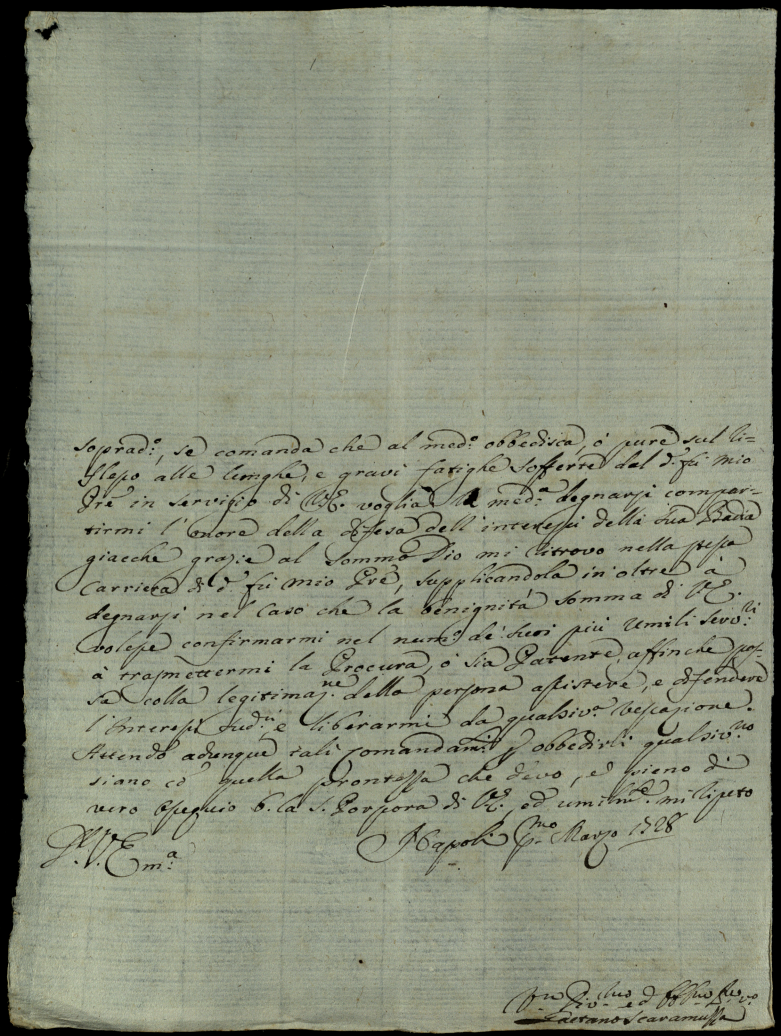 soprad:º, se comanda che al med:º obbedisca, ò pure sul ri-
flesso alle lunghe, e gravi fatighe sofferte dal d:º fù mio
Prē in servizio di V.E. voglia la med:ª degnarsi compar-
tirmi l'onore della difesa dell'interessi della sua Badia
giacche grazie al sommo Dio mi ritrovo nella stessa
Carriera di d:º fù mio Prē, supplicandola in oltre à
degnarsi nel caso che la benignità somma di V.E.
volesse confirmarmi nel num:º de' suoi più umili serv:ri
à trasmettermi la Procura, ò sia Patente, affinche pos-
sa colla legitimaz:ne della persona assistere, e difendere
l'Interessi sud:ti, e liberarmi da qualsiv:ª vessazione.
Attendo adunque tali comandam:ti p obbedirli qualsiv:no
siano cō quella prontezza che devo, ed pieno di
vero ossequio b. la S. Porpora di V.E., ed umilm:te mi ripeto
D. V. Em:ª Napoli p:mo Marzo 1728
Gaetano Scaramuzza